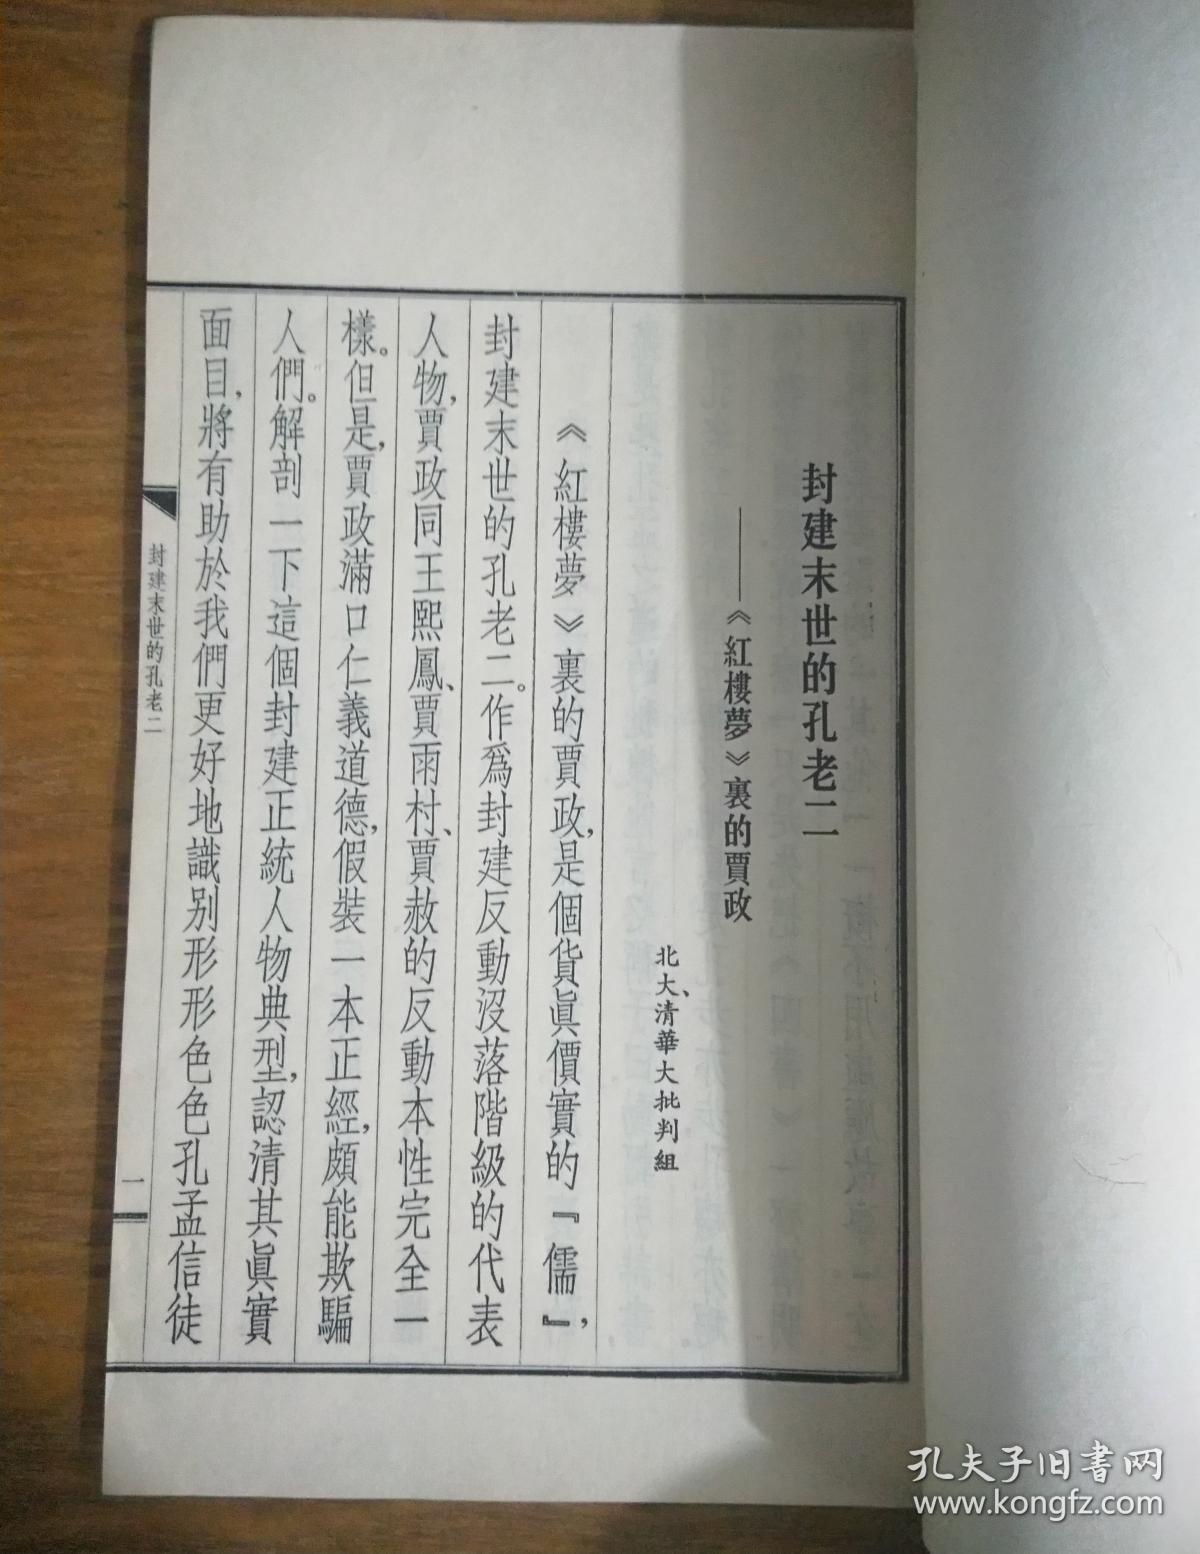 封建末世的孔老二
——《紅樓夢》裏的賈政
北大、清華大批判組
《紅樓夢》裏的賈政，是個貨眞價實的『儒』，
封建末世的孔老二。作爲封建反動没落階級的代表
人物，賈政同王熙鳳、賈雨村、賈赦的反動本性完全一
樣。但是，賈政滿口仁義道德，假裝一本正經，頗能欺騙
人們。解剖一下這個封建正統人物典型，認清其眞實
面目，將有助於我們更好地識别形形色色孔孟信徒
封建末世的孔老二
一
孔夫子旧书网
www.kongfz.com